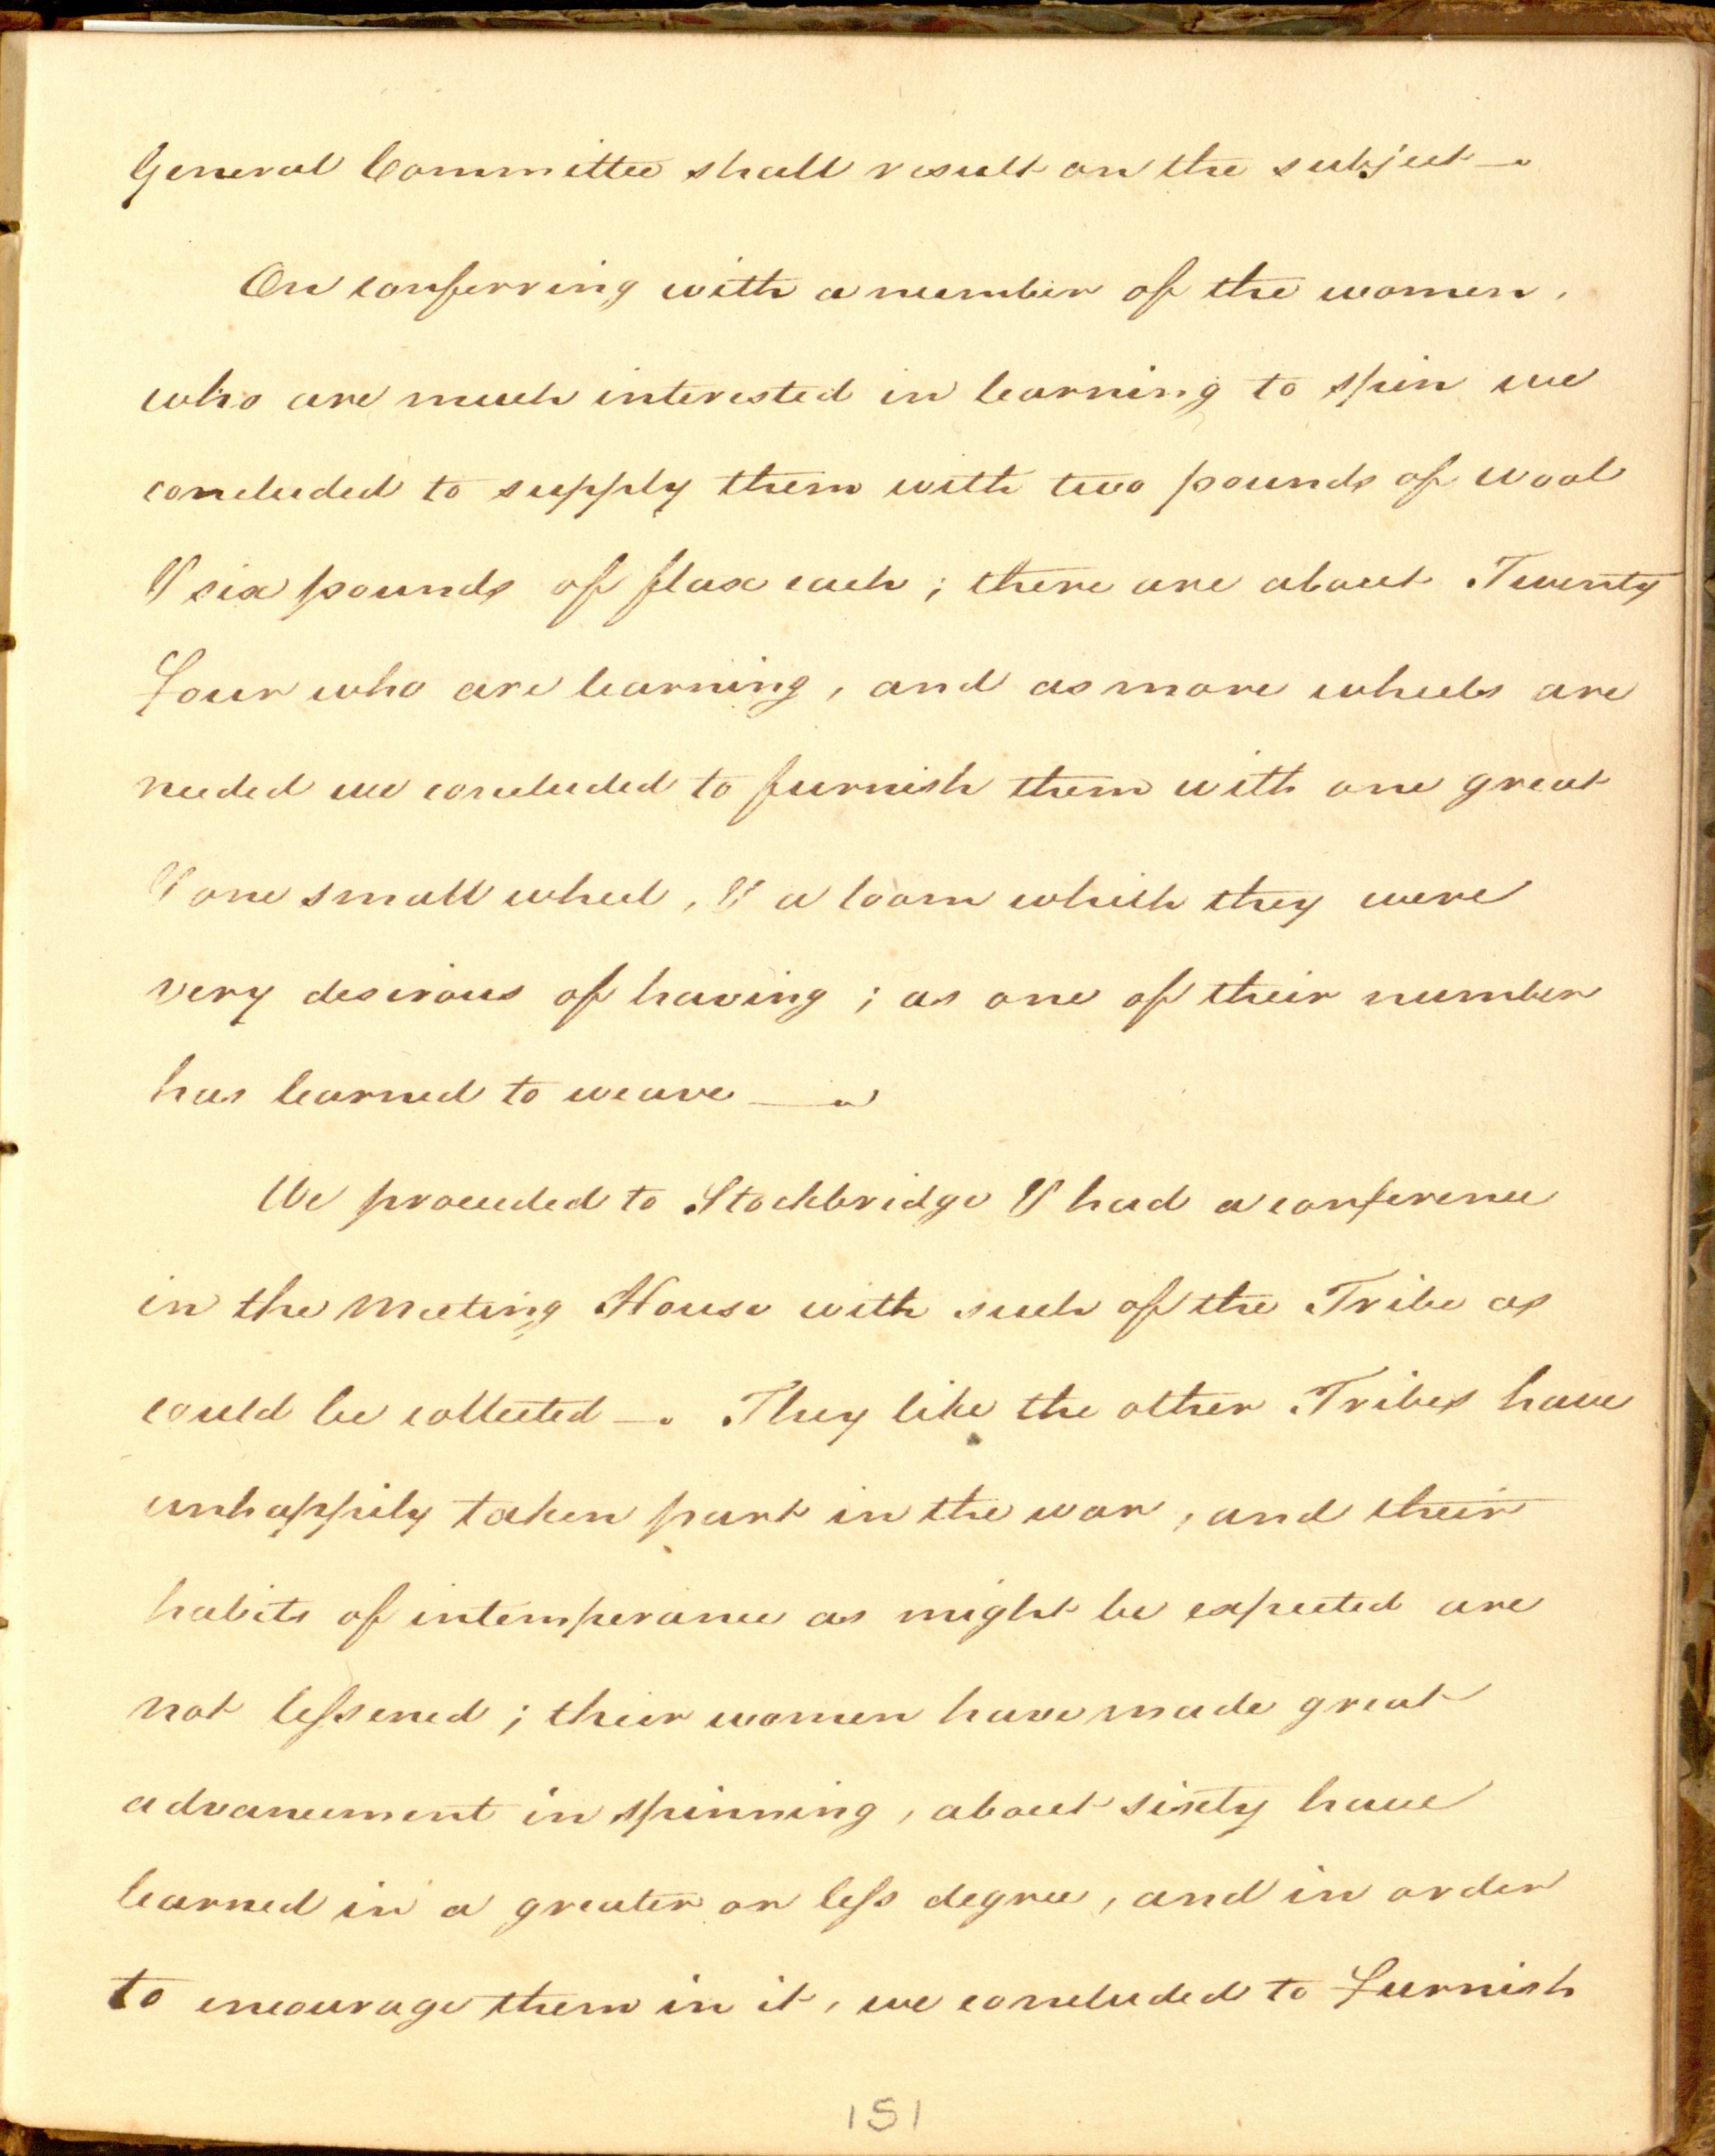 General Committee shall result on the subject —.
On conferring with a number of the women,
who are much interested in learning to spin we
concluded to supply them with two pounds of wool
& six pounds of flax each; there are about Twenty
Four who are learning, and as more wheels are
needed we concluded to furnish them with one great
& one small wheel, & a loom which they were
very desirous of having; as one of their number
has learned to weave —
We proceeded to Stockbridge & had a conference
in the Meeting House with such of the Tribe as
could be collected —. They like the other Tribes have
unhappily taken part in the war, and their
habits of intemperance as might be expected are
not lessened; their women have made great
advancement in spinning, about sixty have
learned in a greater or less degree, and in order
to encourage them in it, we concluded to Furnish
151